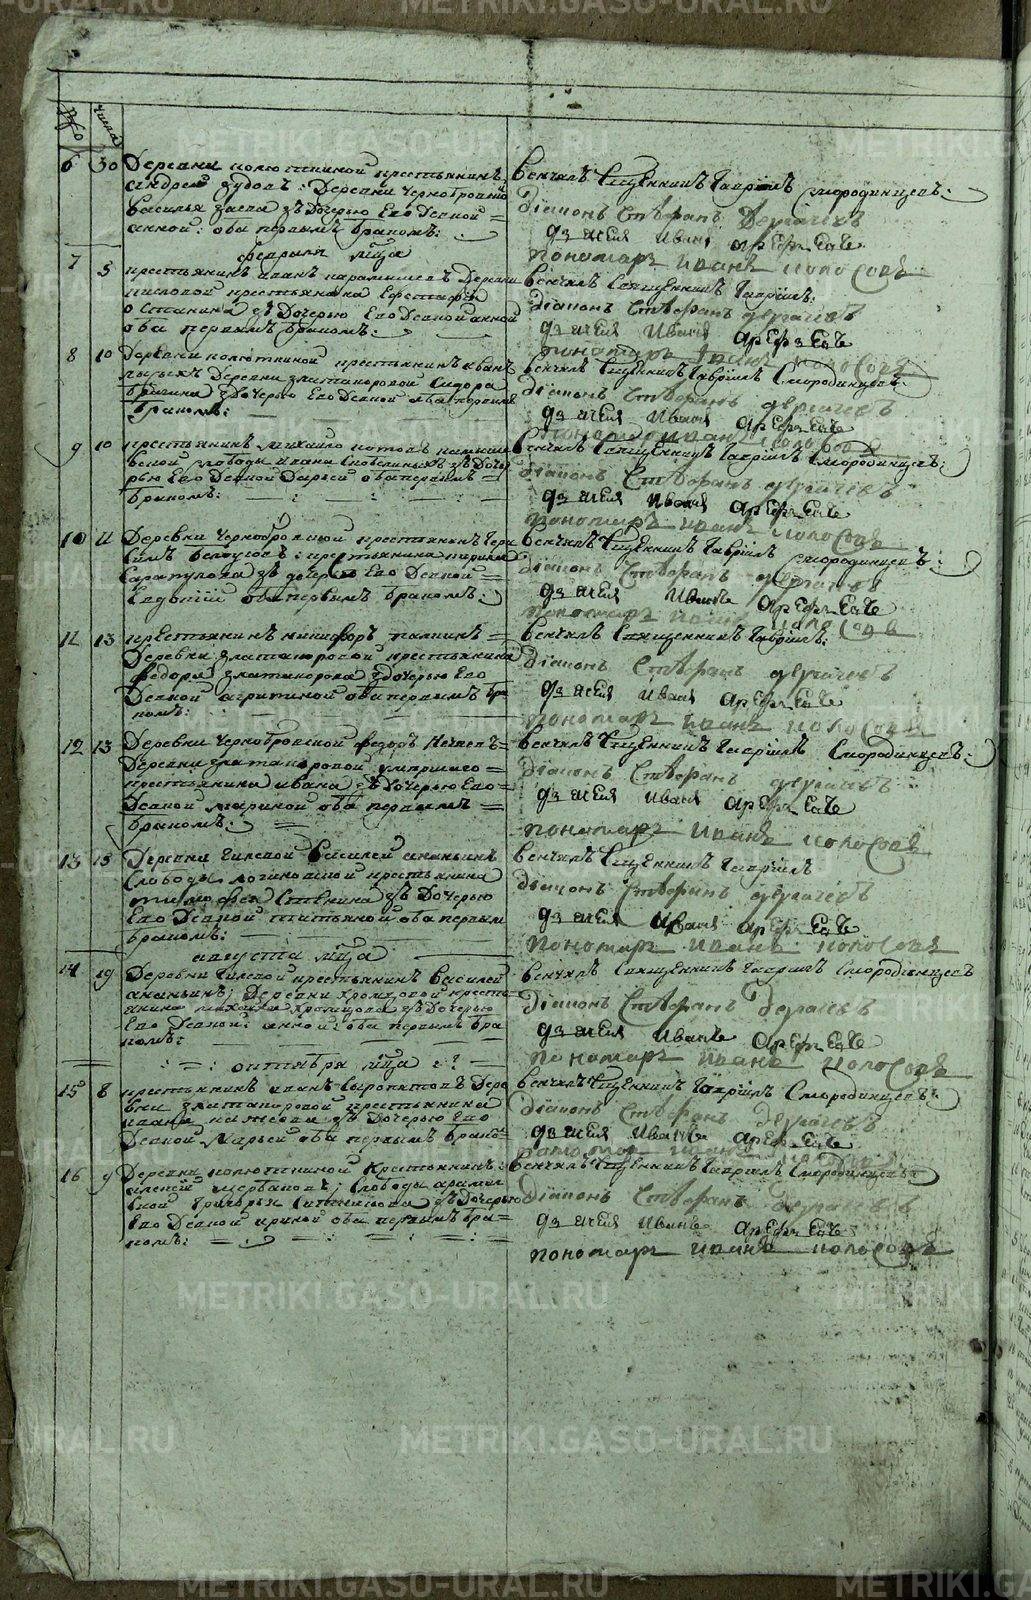 числа
6 30 Деревни колюткиной крестьянинъ
андрей зудовъ: Деревни Чернобровкиной
василья заева зъ Дочерью Ево Девкой
анной: оба первымъ бракомъ:
венчалъ Священникъ Гаврiилъ Смородинцевъ:
дiаконъ Стефанъ Дергачевъ
дьячекъ Иванъ Арефьевъ
пономарь иванъ колосовъ
февраля мца
7 5 крестьянинъ иванъ Деревни
крестьянина Евстафья
зъ Дочерью Ево Девкой анной
оба первымъ бракомъ:
венчалъ Священникъ Гаврiилъ:
дiаконъ Стефанъ дергачевъ
дьячекъ Иванъ Арефьевъ
пономарь колосовъ
8 10 Деревни колюткиной крестьянинъ иванъ
Деревни златогоровой Сидора
зъ Дочерью Ево Девкой оба первымъ
бракомъ:
венчалъ Священникъ Гаврiилъ Смородинцевъ:
дiаконъ Стефанъ дергачевъ
дьячекъ Иванъ Арефьевъ
пономарь иванъ колосовъ
9 10 крестьянинъ михайло котовъ
слободы ивана зъ Дочерью
Ево Девкой Дарьей оба первымъ
бракомъ:
венчалъ Священникъ Гаврiилъ Смородинцевъ:
дiаконъ Стефанъ дергачевъ
дьячекъ Иванъ Арефьевъ
пономарь иванъ колосовъ
10 11 Деревни Чернобровкиной крестьянинъ
белоусовъ: крестьянина кирила
Сарапулова зъ дочерью Ево Девкой
Евдокiей оба первымъ бракомъ:
венчалъ Священникъ Гаврiилъ Смородинцевъ:
дiаконъ Стефанъ дергачевъ
дьячекъ Иванъ Арефьевъ
пономарь иванъ колосовъ
11 13 крестьянинъ никифоръ палкинъ
Деревни златогоровой крестьянина
федора златогорова зъ дочерью Ево
Девкой агрипиной оба первымъ бра
комъ:
венчалъ Священникъ Гаврiилъ:
дiаконъ Стефанъ дергачевъ
дьячекъ Иванъ Арефьевъ
пономарь иванъ колосовъ
12 13 Деревни Чернобровской федоръ Нечаевъ
Деревни златогоровой умершаго
крестьянина ивана зъ Дочерью Ево
Девкой мариной оба первымъ
бракомъ:
венчалъ Священникъ Гаврiилъ Смородинцевъ:
дiаконъ Стефанъ дергачевъ
дьячекъ Иванъ Арефьевъ
пономарь иванъ колосовъ
13 15 Деревни Гилевой Василей ананьинъ
Слободы логиновской крестьянина
тимофея Стенина зъ Дочерью
Ево Девкой татьяной оба первым
бракомъ:
венчалъ Священникъ Гаврiилъ
дiаконъ Стефанъ дергачевъ
дьячекъ Иванъ Арефьевъ
пономарь иванъ колосовъ
августа мца
14 19 Деревни Гилевой крестьянинъ Василей
ананьинъ: Деревни Хромцовой кресть
янина Хромцова зъ Дочерью
Ево Девкой: анной: оба первымъ бра
комъ:
венчалъ Священникъ Гаврiилъ Смородинцевъ
дiаконъ Стефанъ Дергачевъ
дьячекъ Иванъ Арефьевъ
пономарь иванъ колосовъ
октября мца
15 8 крестьянинъ иванъ Сыропятовъ Дере
вни златогоровой крестьянина
ивана зъ Дочерью Ево
Девкой Марьей оба первымъ брако
венчалъ Священникъ Гаврiилъ Смородинцевъ:
дiаконъ Стефанъ Дергачевъ
дьячекъ Иванъ Арефьевъ
пономарь иванъ
16 9 Деревни колюткиной Крестьянинъ:
алексей щербаковъ: Слободы арамил
ской Григорья Ситникова зъ Дочерью
Ево Девкой ириной оба первымъ бра
комъ:
венчалъ Священникъ Гаврiилъ Смородинцевъ
дiаконъ Стефанъ Дергачевъ
дьячекъ Иванъ Арефьевъ
пономарь иванъ колосовъ
METRIKI.GASO-URAL.RU